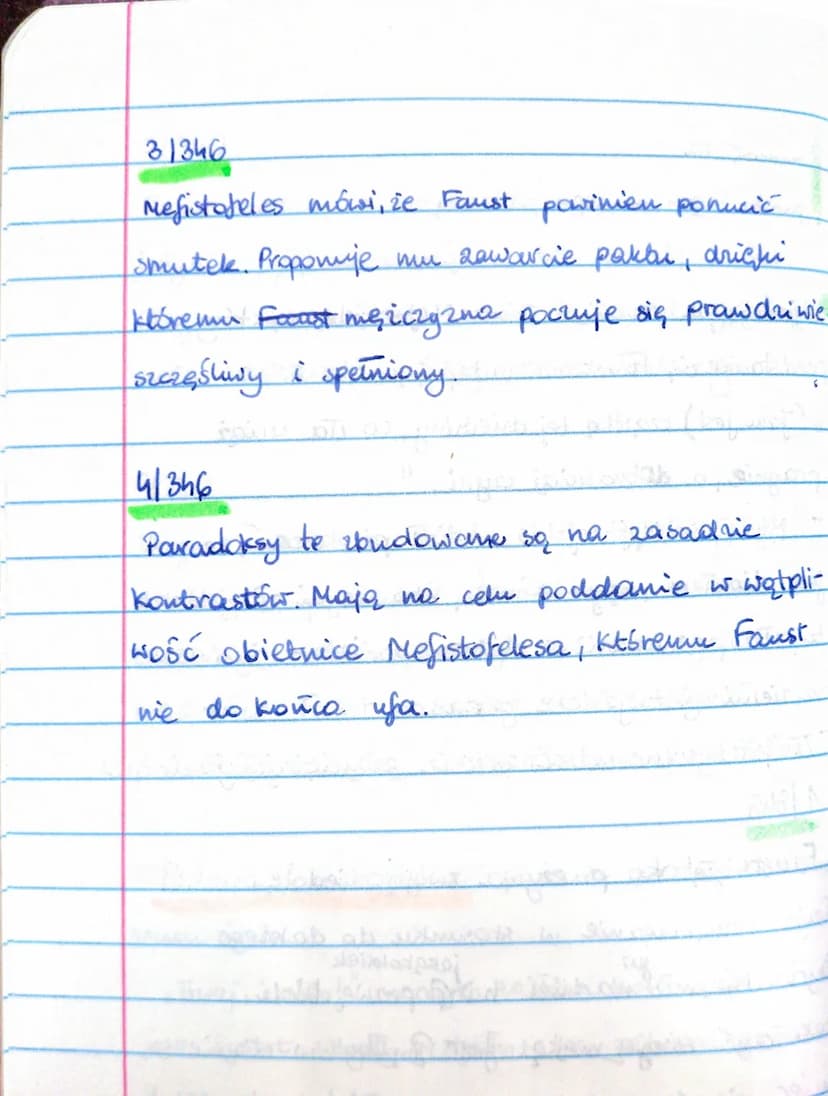 3/346
Mefistofeles mówi, że Faust powinien porzucić
smutek. Proponuje mu zawarcie paktu, dzięki
któremu Faust mężczyzna poczuje się prawdziwie
szczęśliwy i spełniony.
4/346
Paradoksy te zbudowane są na zasadzie
kontrastów. Mają na celu poddanie w wątpli-
wość obietnice Mefistofelesa, któremu Faust
nie do końca ufa.